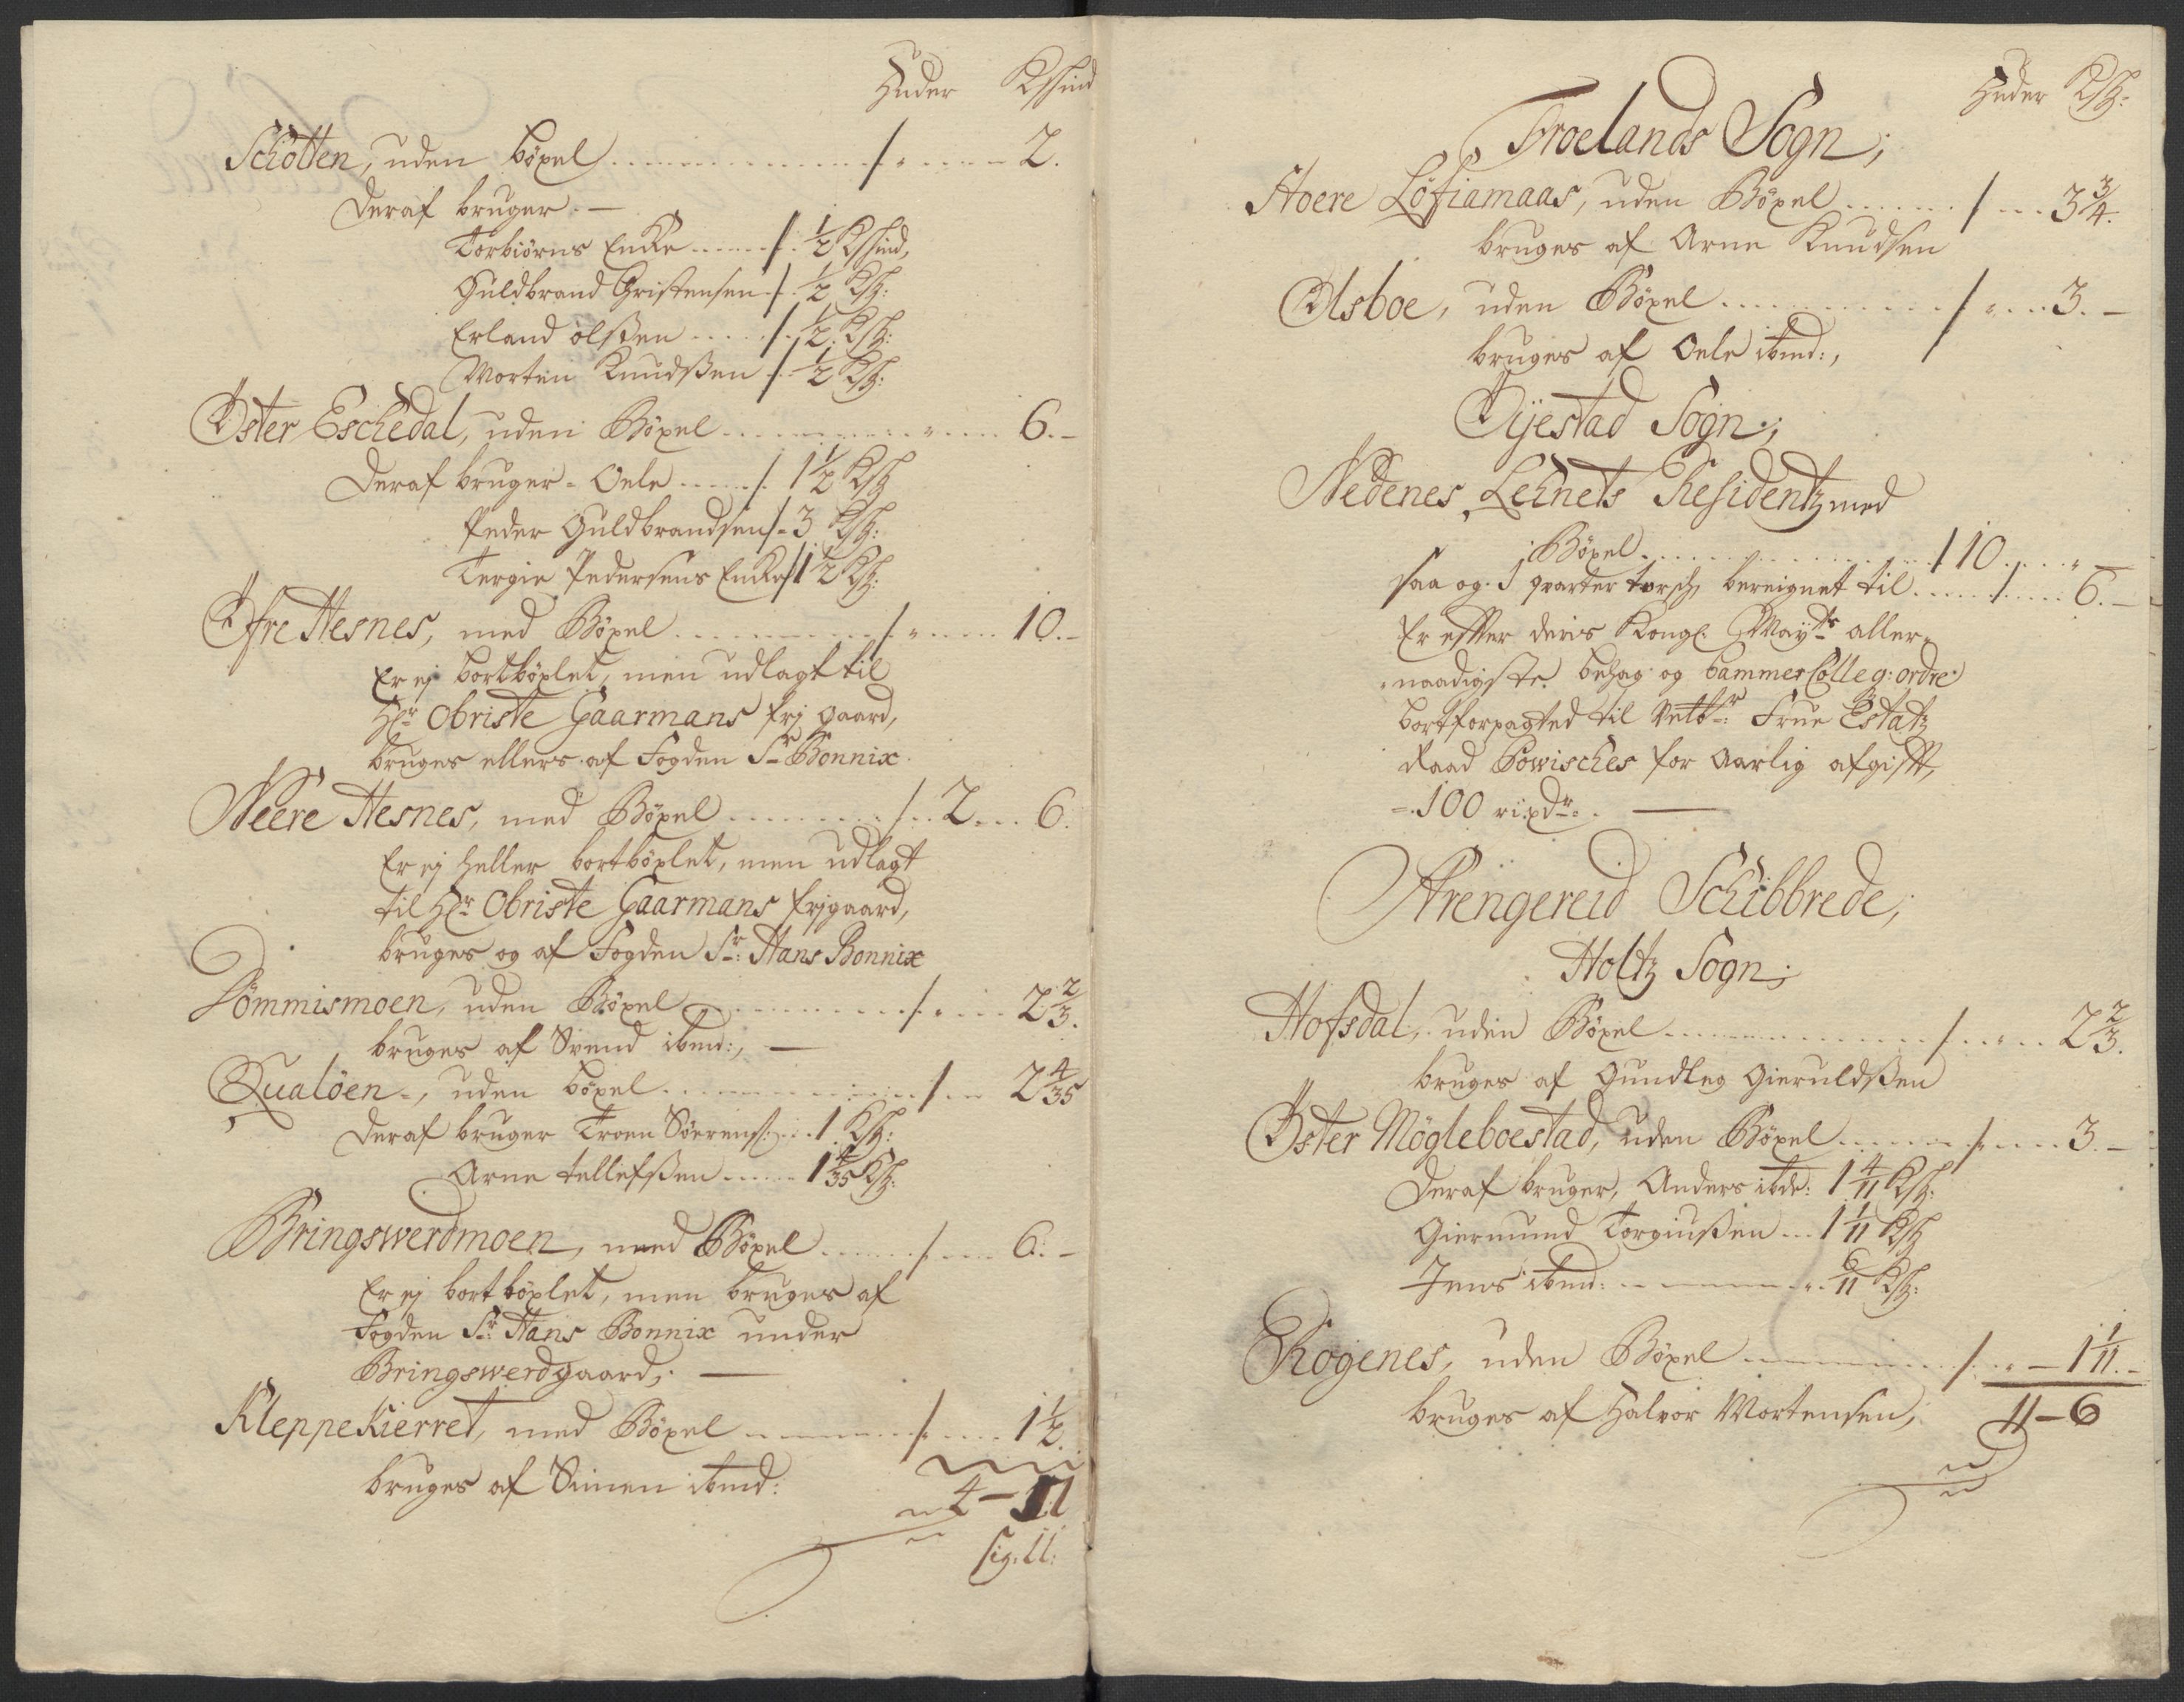 Huder Kschind
Schotten, uden böxel 2.
Deraf bruger
Torbiörns Encke ½ Kschind,
Guldbrand Christensen ½ Ksh:
Erland olßen ½ Ksh:
Morten Knudßen ½ Ksh:
Öster Eschedal, uden Böxel 6.
Deraf bruger Oele 1½ Ksh
Peder Guldbrandsen 3 Ksh:
Tergie Pedersens Encke 1½ Ksh:
Öfre Hesnes, med Böxel 10.
Er ej bortböxlet, men udlagt til
Hr Obriste Gaarmans frj gaard,
bruges ellers af Fogden Sr Bonnix
Neere Hesnes, med Böxel 2 6.
Er ej heller bortböxlet, men udlagt
til Hr Obriste Gaarmans frjgaard,
bruges og af Fogden Sr: Hans Bonnix
Dömmismoen, uden Böxel 2 2/3.
bruges af Svend ibmd:,
Qualöen, uden böxel 2 4/35
Deraf bruger Troen Söerens: 1 Ksh:
Arne tellefßen 1 4/35 Ksh:
Bringswerdmoen, med Böxel 6.
Er ej bortböxlet, men bruges af
Fogden Sr: Hans Bonnix under
Bringswerdgaard,
Kleppekierret, med Böxel 1½.
bruges af Simen ibmd:
4 - 11
sig: 11:
Huder Ksh:
Froelands Sogn;
Hoere Löfiamaas, uden Böxel 3¾.
bruges af Arne Knudsen
Olsboe, uden Böxel 3.
bruges af Oele ibmd:,
Öyestad Sogn;
Nedenes Lehnets Residentz med
Böxel 10
saa og 1 qvarter torsch, bereignet til 6.
Er efter deris Kongl. Mayts aller-
naadigste behag og CammerColleg: ordre
bortforpagted til Velbr: Frue Estatz
Raad Powisches for Aarlig afgifft,
100 rixdr:
Arengereid Schibbrede;
Holtz Sogn;
Hofsdal, uden Böxel 2 2/3.
bruges af Gundleg Gieruldßen
Öster Mögleboestad, uden Böxel 3.
Deraf bruger, Anders ibd: 1 4/11 Ksh:
Giermund Torgiußen 1 1/11 Ksh
Jens ibmd: 6/11 Ksh:
Rogenes, uden Böxel 1 1/11.
bruges af Halvor Mortensen, 11 - 6